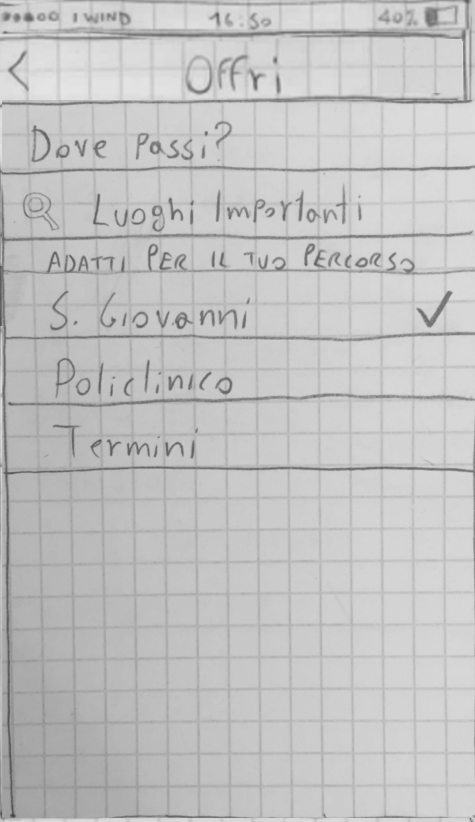 I WIND 16:50 40%
< Offri
Dove passi?
Luoghi Importanti
ADATTI PER IL TUO PERCORSO
S. Giovanni ✓
Policlinico
Termini